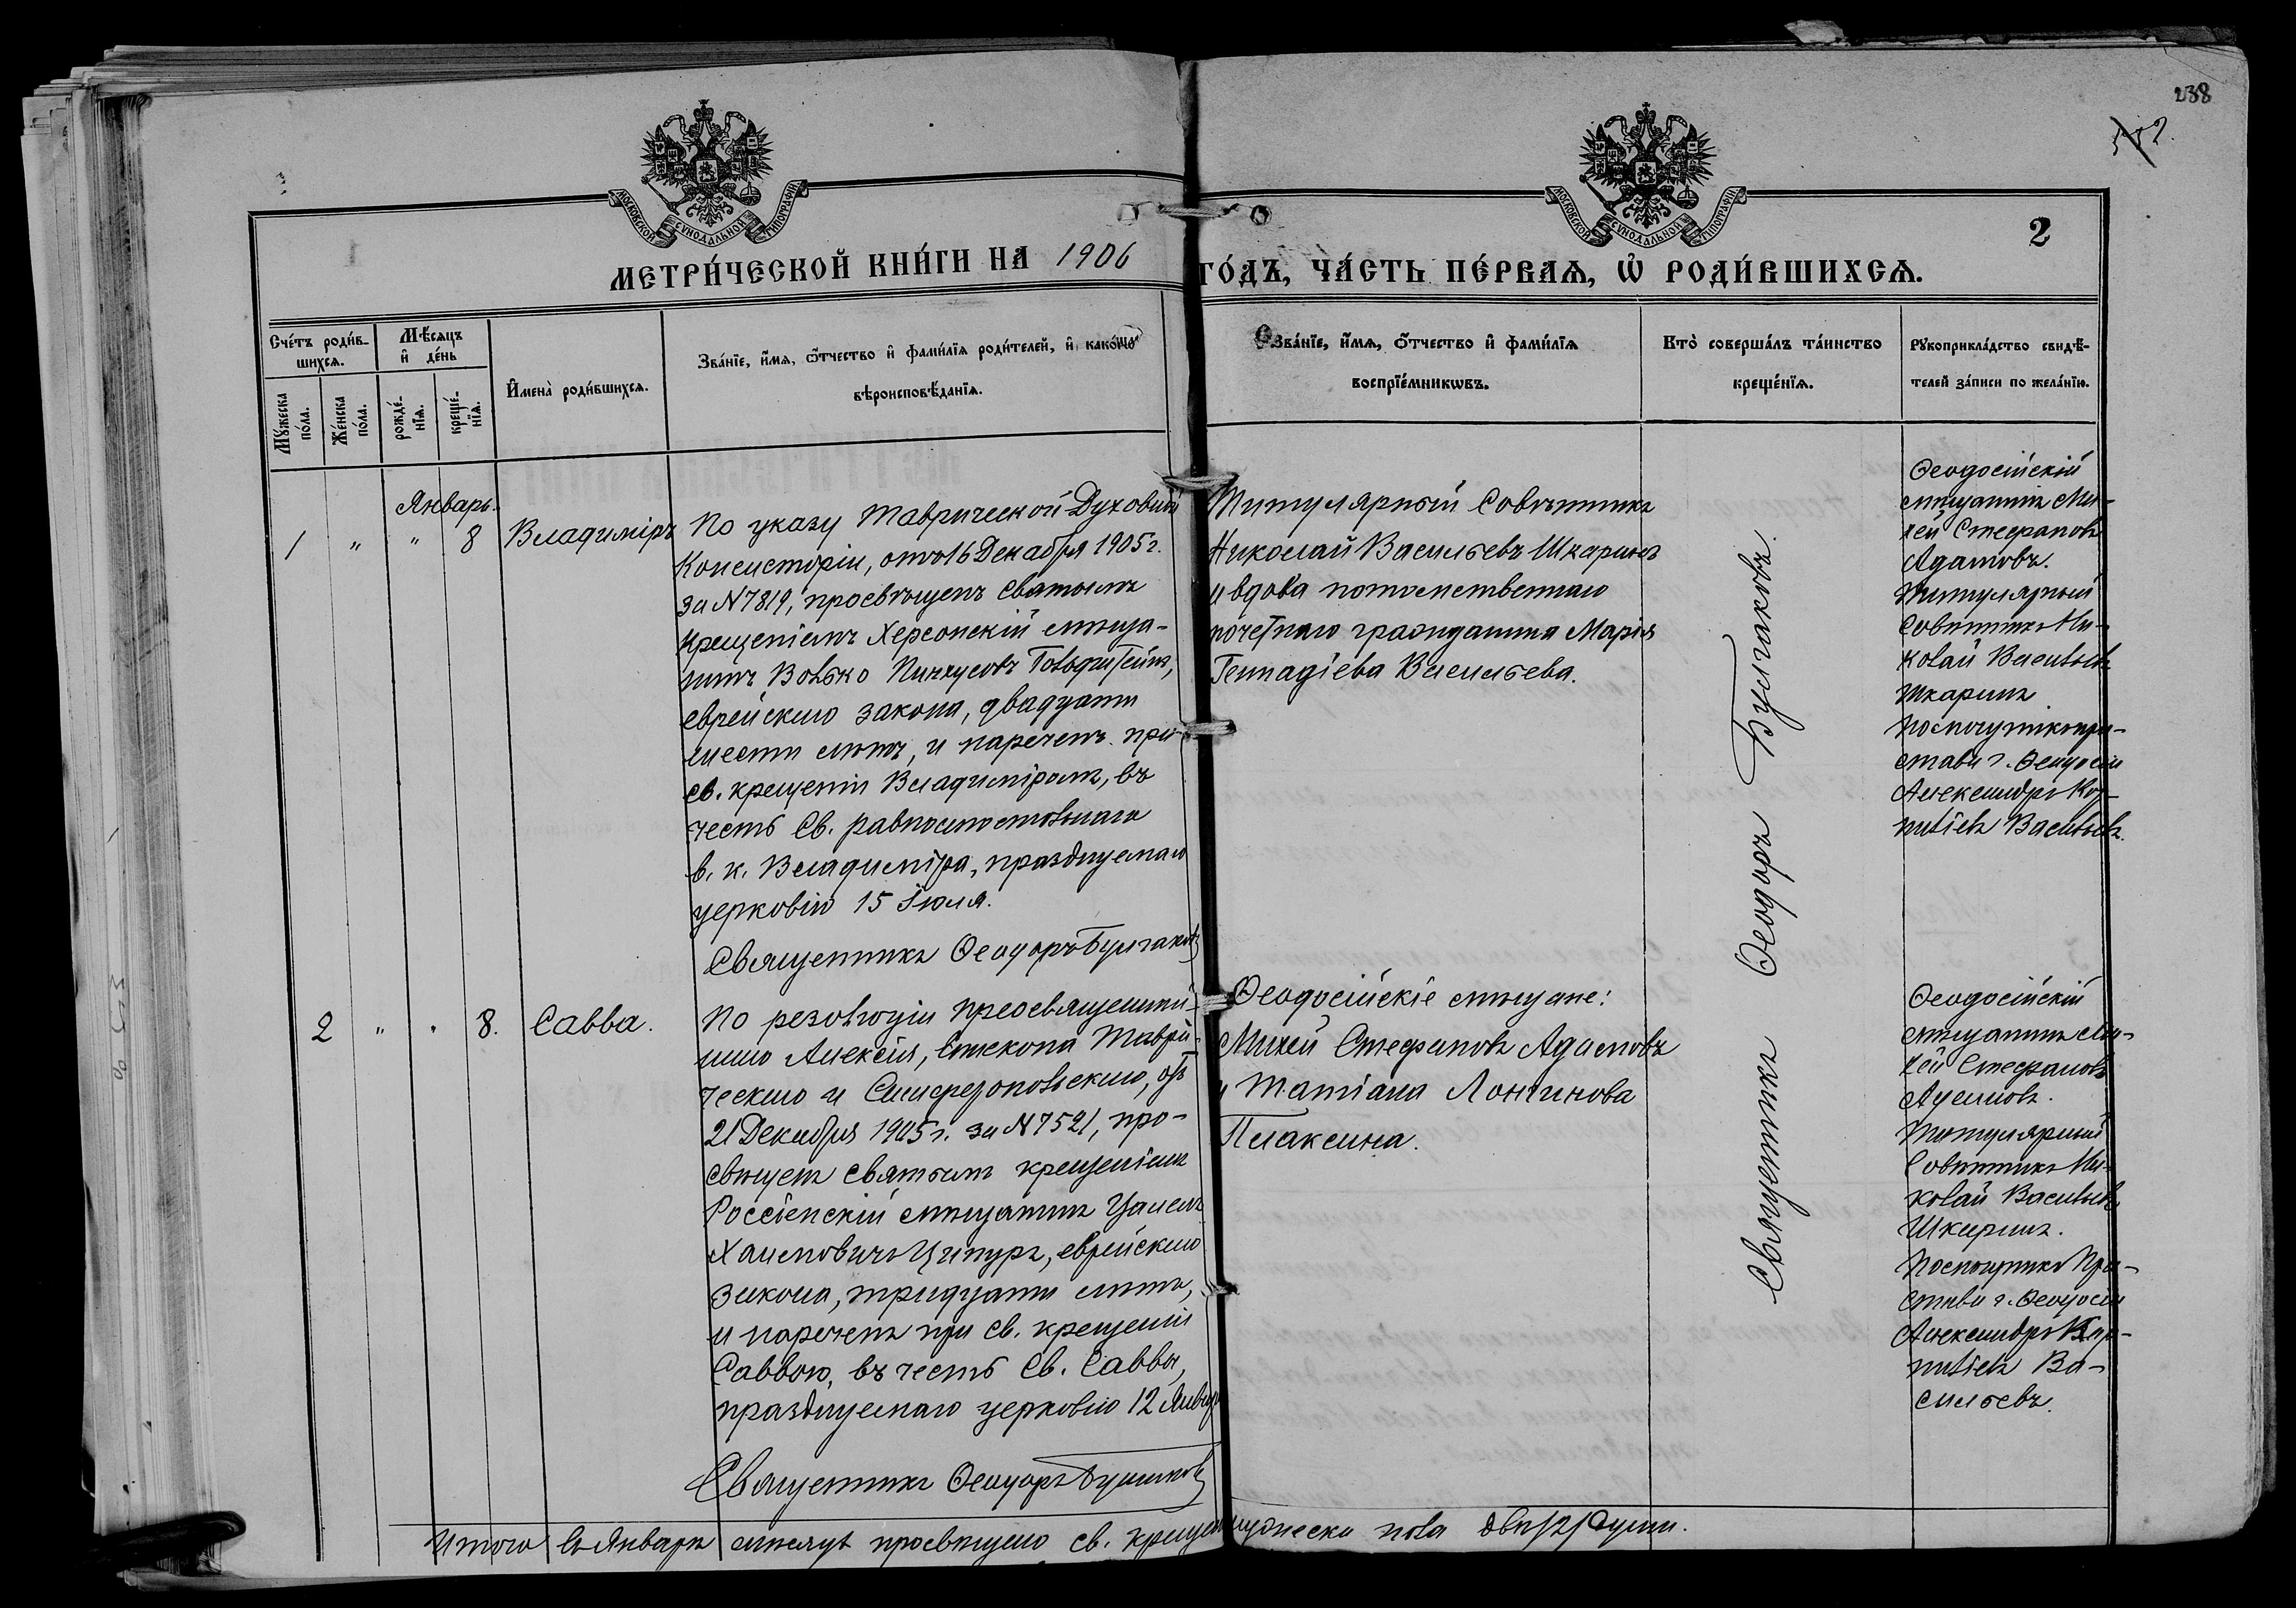 238
2
МОСКОВСКОЙ СѴНОДАЛЬНОЙ ТИПОГРАФІИ
МОСКОВСКОЙ СѴНОДАЛЬНОЙ ТИПОГРАФІИ
МЕТРИ́ЧЕСКОЙ КНИ́ГИ НА 1906 ГО́ДЪ, ЧА́СТЬ ПЕ́РВАѦ, Ѡ҆ РОДИ́ВШИХСѦ.
Сче́тъ роди́в-
шихсѧ.
Мꙋ́жеска
по́ла.
Же́нска
по́ла.
Мѣ́сѧцъ
и҆ де́нь
рожде́-
нїѧ.
креще́-
нїѧ.
И҆мена̀ роди́вшихсѧ.
Зва́нїе, и҆́мѧ, ѻ҆́тчество и҆ фами́лїѧ роди́телей, и҆ како́гѡ
вѣроисповѣ́данїѧ.
Зва́нїе, и҆́мѧ, ѻ҆́тчество и҆ фами́лїѧ
воспрїе́мникѡвъ.
Кто̀ соверша́лъ та́инство
креще́нїѧ.
Рꙋкоприкла́дство свидѣ́-
телей за́писи по жела́нїю.
Январь.
1 " " 8 Владиміръ
По указу Таврической Духовной
Консисторіи, отъ 16 Декабря 1905 г.
за N 7819, просвѣщенъ Святымъ
Крещеніемъ Херсонскій мѣща-
нинъ Волько Пинхусовъ Гольдштейнъ,
еврейскаго закона, двадцати
шести лѣтъ, и нареченъ при
св. крещеніи Владиміромъ, въ
честь Св. равноапостольнаго
в. к. Владиміра, празднуемаго
церковію 15 Іюля.
Священникъ Ѳеодоръ Булгаковъ
Титулярный Совѣтникъ
Николай Васильевъ Шкаринъ
и вдова потомственнаго
почетнаго гражданина Марія
Геннадіева Васильева.
Священникъ Ѳеодоръ Булгаковъ.
Ѳеодосійскій
мѣщанинъ Ми-
хей Стефановъ
Адамовъ.
Титулярный
Совѣтникъ Ни-
колай Васильевъ
Шкаринъ
Помощникъ при-
става г. Ѳеодосіи
Александръ Кор-
нильевъ Васильевъ.
2 " " 8. Савва.
По резолюціи Преосвященнѣй-
шаго Алексія, Епископа Таври-
ческаго и Симферопольскаго, отъ
21 Декабря 1905 г. за N 7521, про-
свѣщенъ Святымъ крещеніемъ
Россіенскій мѣщанинъ Цалелъ
Хаимовичъ Ципуръ, еврейскаго
закона, тридцати лѣтъ,
и нареченъ при св. крещеніи
Саввою, въ честь Св. Саввы,
празднуемаго церковію 12 Января
Священникъ Ѳеодоръ Булгаковъ
Ѳеодосійскіе мѣщане:
Михей Стефановъ Адамовъ
и Татіана Лонгинова
Плаксина.
Ѳеодосійскій
мѣщанинъ Ми-
хей Стефановъ
Адамовъ.
Титулярный
Совѣтникъ Ни-
колай Васильевъ
Шкаринъ.
Помощникъ При-
става г. Ѳеодосіи
Александръ Кор-
нильевъ Ва-
сильевъ.
Итого въ Январѣ мѣсяцѣ просвѣщено св. крещен мужеска пола двѣ /2/ души.